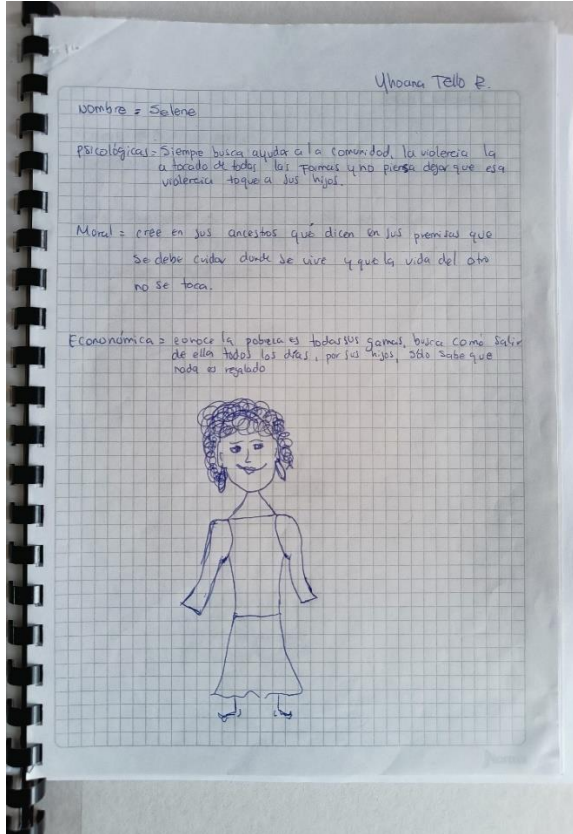 Yhoana Tello R.
Nombre = Selene
Psicológicas = Siempre busca ayudar a la comunidad, la violencia la
a tocado de todas las formas y no piensa dejar que esa
violencia toque a sus hijos.
Moral = cree en sus ancestros que dicen en sus premisas que
se debe cuidar donde se vive y que la vida del otro
no se toca.
Econonómica = conoce la pobreza es todas sus gamas, busca como salir
de ella todos los días, por sus hijos, sólo sabe que
nada es regalado